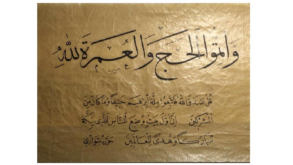 واتموا الحج والعمرة لله
قل صدق الله فاتبعوا ملة ابرهيم حنيفا وما كان من
المشركين ان اول بيت وضع للناس للذي ببكة
مباركا وهدى للعالمين